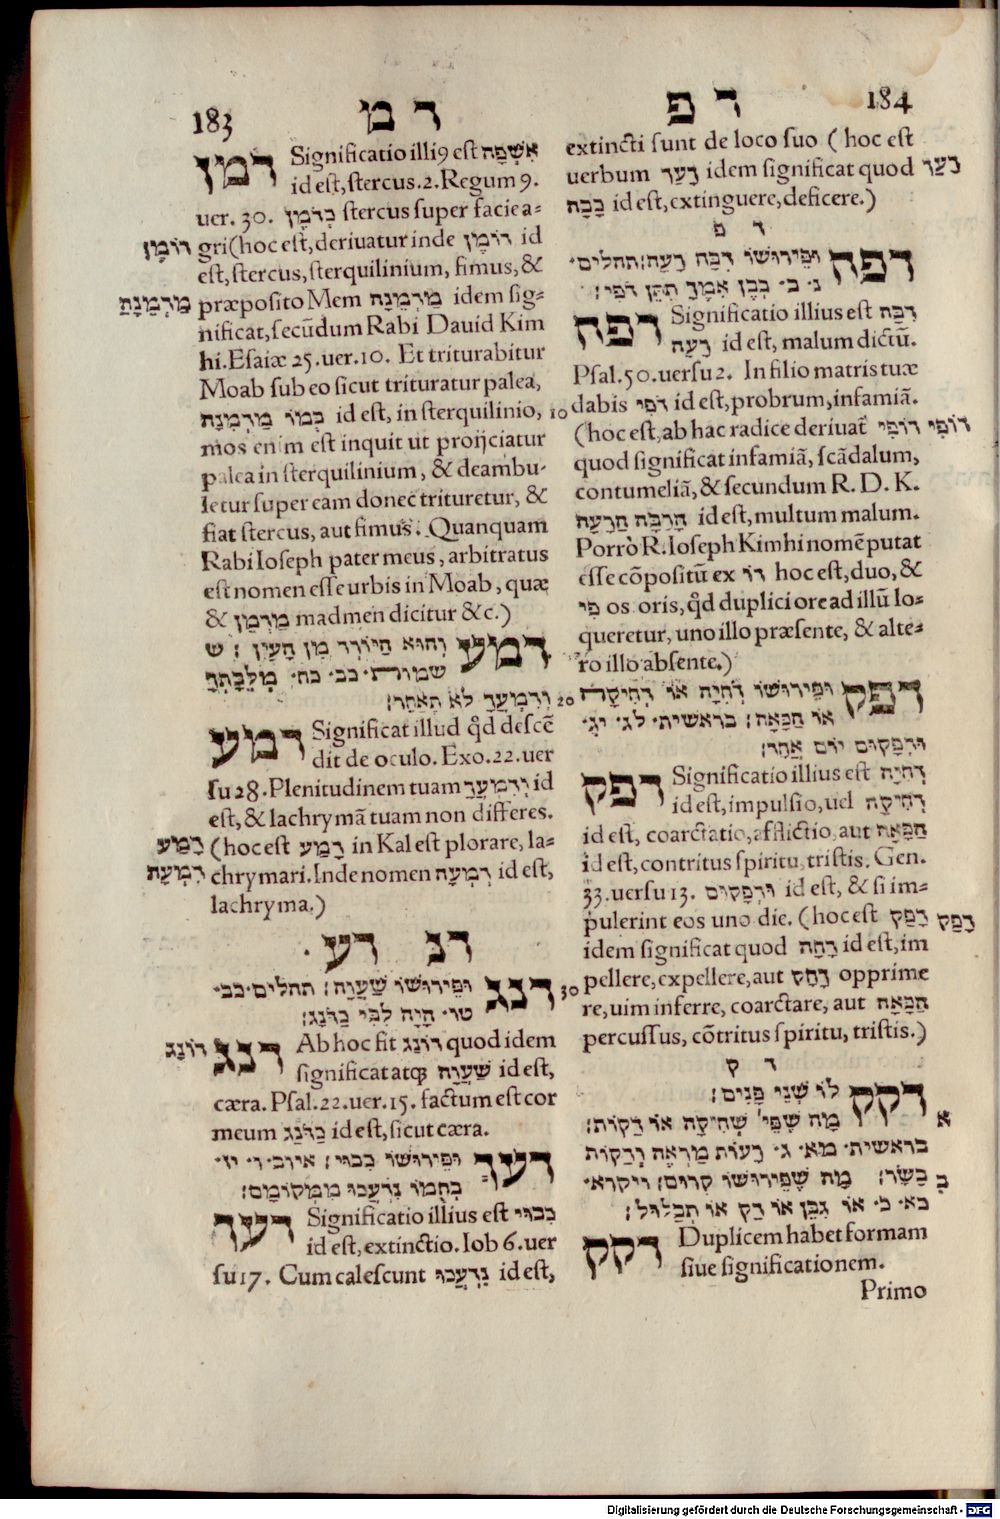 183
ד מ
דמן Significatio illi9 est אַשְׁפָּה
id est, stercus. 2. Regum 9.
uer. 30. כְּדֹמֶן stercus super facie a=
דוֹמֶן gri (hoc est, deriuatur inde דוֹמֶן id
est, stercus, sterquilinium, fimus, &
מַדְמֵנָה præposito Mem מַדְמֵנָה idem sig=
nificat, secũdum Rabi Dauid Kim
hi. Esaiæ 25. uer. 10. Et triturabitur
Moab sub eo sicut trituratur palea,
בְּמוֹ מַדְמֵנָה id est, in sterquilinio, 10
mos enim est inquit ut proijciatur
palea in sterquilinium, & deambu-
letur super eam donec trituretur, &
fiat stercus, aut fimus. Quanquam
Rabi Ioseph pater meus, arbitratus
est nomen esse urbis in Moab, quæ
& מַדְמֵן madmen dicitur &c.)
דמע וְהוּא הַיּוֹרֵד מִן הָעַיִן : ש
שמות· כב· כח· מְלֵאָתְךָ
וְדִמְעֲךָ לֹא תְאַחֵר: 20
דמע Significat illud q̃d descẽ
dit de oculo. Exo. 22. uer
su 28. Plenitudinem tuam וְדִמְעֲךָ id
est, & lachrymã tuam non differes.
דָּמַע (hoc est דָּמַע in Kal est plorare, la=
דִּמְעָה chrymari. Inde nomen דִּמְעָה id est,
lachryma.)
דנ דע
דנג וּפֵירוּשׁוֹ שַׁעֲוָה: תהלים· כב· 30
טו· הָיָה לִבִּי כַּדּוֹנָג:
דוֹנָג דנג Ab hoc fit דוֹנָג quod idem
significat atq; שַׁעֲוָה id est,
cæra. Psal. 22. uer. 15. factum est cor
meum כַּדּוֹנָג id est, sicut cæra.
דעך וּפֵירוּשׁוֹ כִּבּוּי: איוב· ו· יז·
בְּחֻמּוֹ נִדְעֲכוּ מִמְּקוֹמָם:
דעך Significatio illius est כִּבּוּי
id est, extinctio. Iob 6. uer
su 17. Cum calescunt נִדְעֲכוּ id est,
ד פ
184
extincti sunt de loco suo (hoc est
uerbum דָּעַךְ idem significat quod דָּעַךְ
כָּבָה id est, extinguere, deficere.)
ד פ
דפה וּפֵירוּשׁוֹ דִּבָּה רָעָה: תהלים·
נ· כ· בְּבֶן אִמְּךָ תִּתֵּן דֹּפִי:
דפה Significatio illius est דִּבָּה
רָעָה id est, malum dictũ.
Psal. 50. uersu 2. In filio matris tuæ
dabis דֹּפִי id est, probrum, infamiã.
(hoc est, ab hac radice deriuat דּוֹפִי דּוֹפִי
quod significat infamiã, scãdalum,
contumeliã, & secundum R. D. K.
הַרְבֵּה הָרָעָה id est, multum malum.
Porrò R. Ioseph Kimhi nomẽ putat
esse cõpositũ ex דוֹ hoc est, duo, &
פִּי os oris, q̃d duplici ore ad illũ lo=
queretur, uno illo præsente, & alte=
ro illo absente.)
דפק וּפֵירוּשׁוֹ דְּחִיָּה אוֹ דְּחִיקָה
אוֹ הַכָּאָה: בראשית· לג· יג·
וּדְפָקוּם יוֹם אֶחָד:
דפק Significatio illius est דְּחִיָּה
id est, impulsio, uel דְּחִיקָה
id est, coarctatio, afflictio, aut הַכָּאָה
id est, contritus spiritu, tristis. Gen.
33. uersu 13. וּדְפָקוּם id est, & si im=
pulerint eos uno die. (hoc est דָּפַק דָּפַק
idem significat quod דָּחָה id est, im
pellere, expellere, aut דָּחַק opprime
re, uim inferre, coarctare, aut הַכָּאָה
percussus, cõtritus spiritu, tristis.)
ד ק
דקק לוֹ שְׁנֵי פָּנִים:
מָה שֶׁפֵּי' שְׁחִיקָה אוֹ דַקּוּת: א
בראשית· מא· ג· רָעוֹת מַרְאֶה וְדַקּוֹת
בָּשָׂר: מָה שֶׁפֵּירוּשׁוֹ קְרוּם: ויקרא· ב
כא· כ· אוֹ גִבֵּן אוֹ דַק אוֹ תְּבַלּוּל:
דקק Duplicem habet formam
siue significationem.
Primo
Digitalisierung gefördert durch die Deutsche Forschungsgemeinschaft - DFG